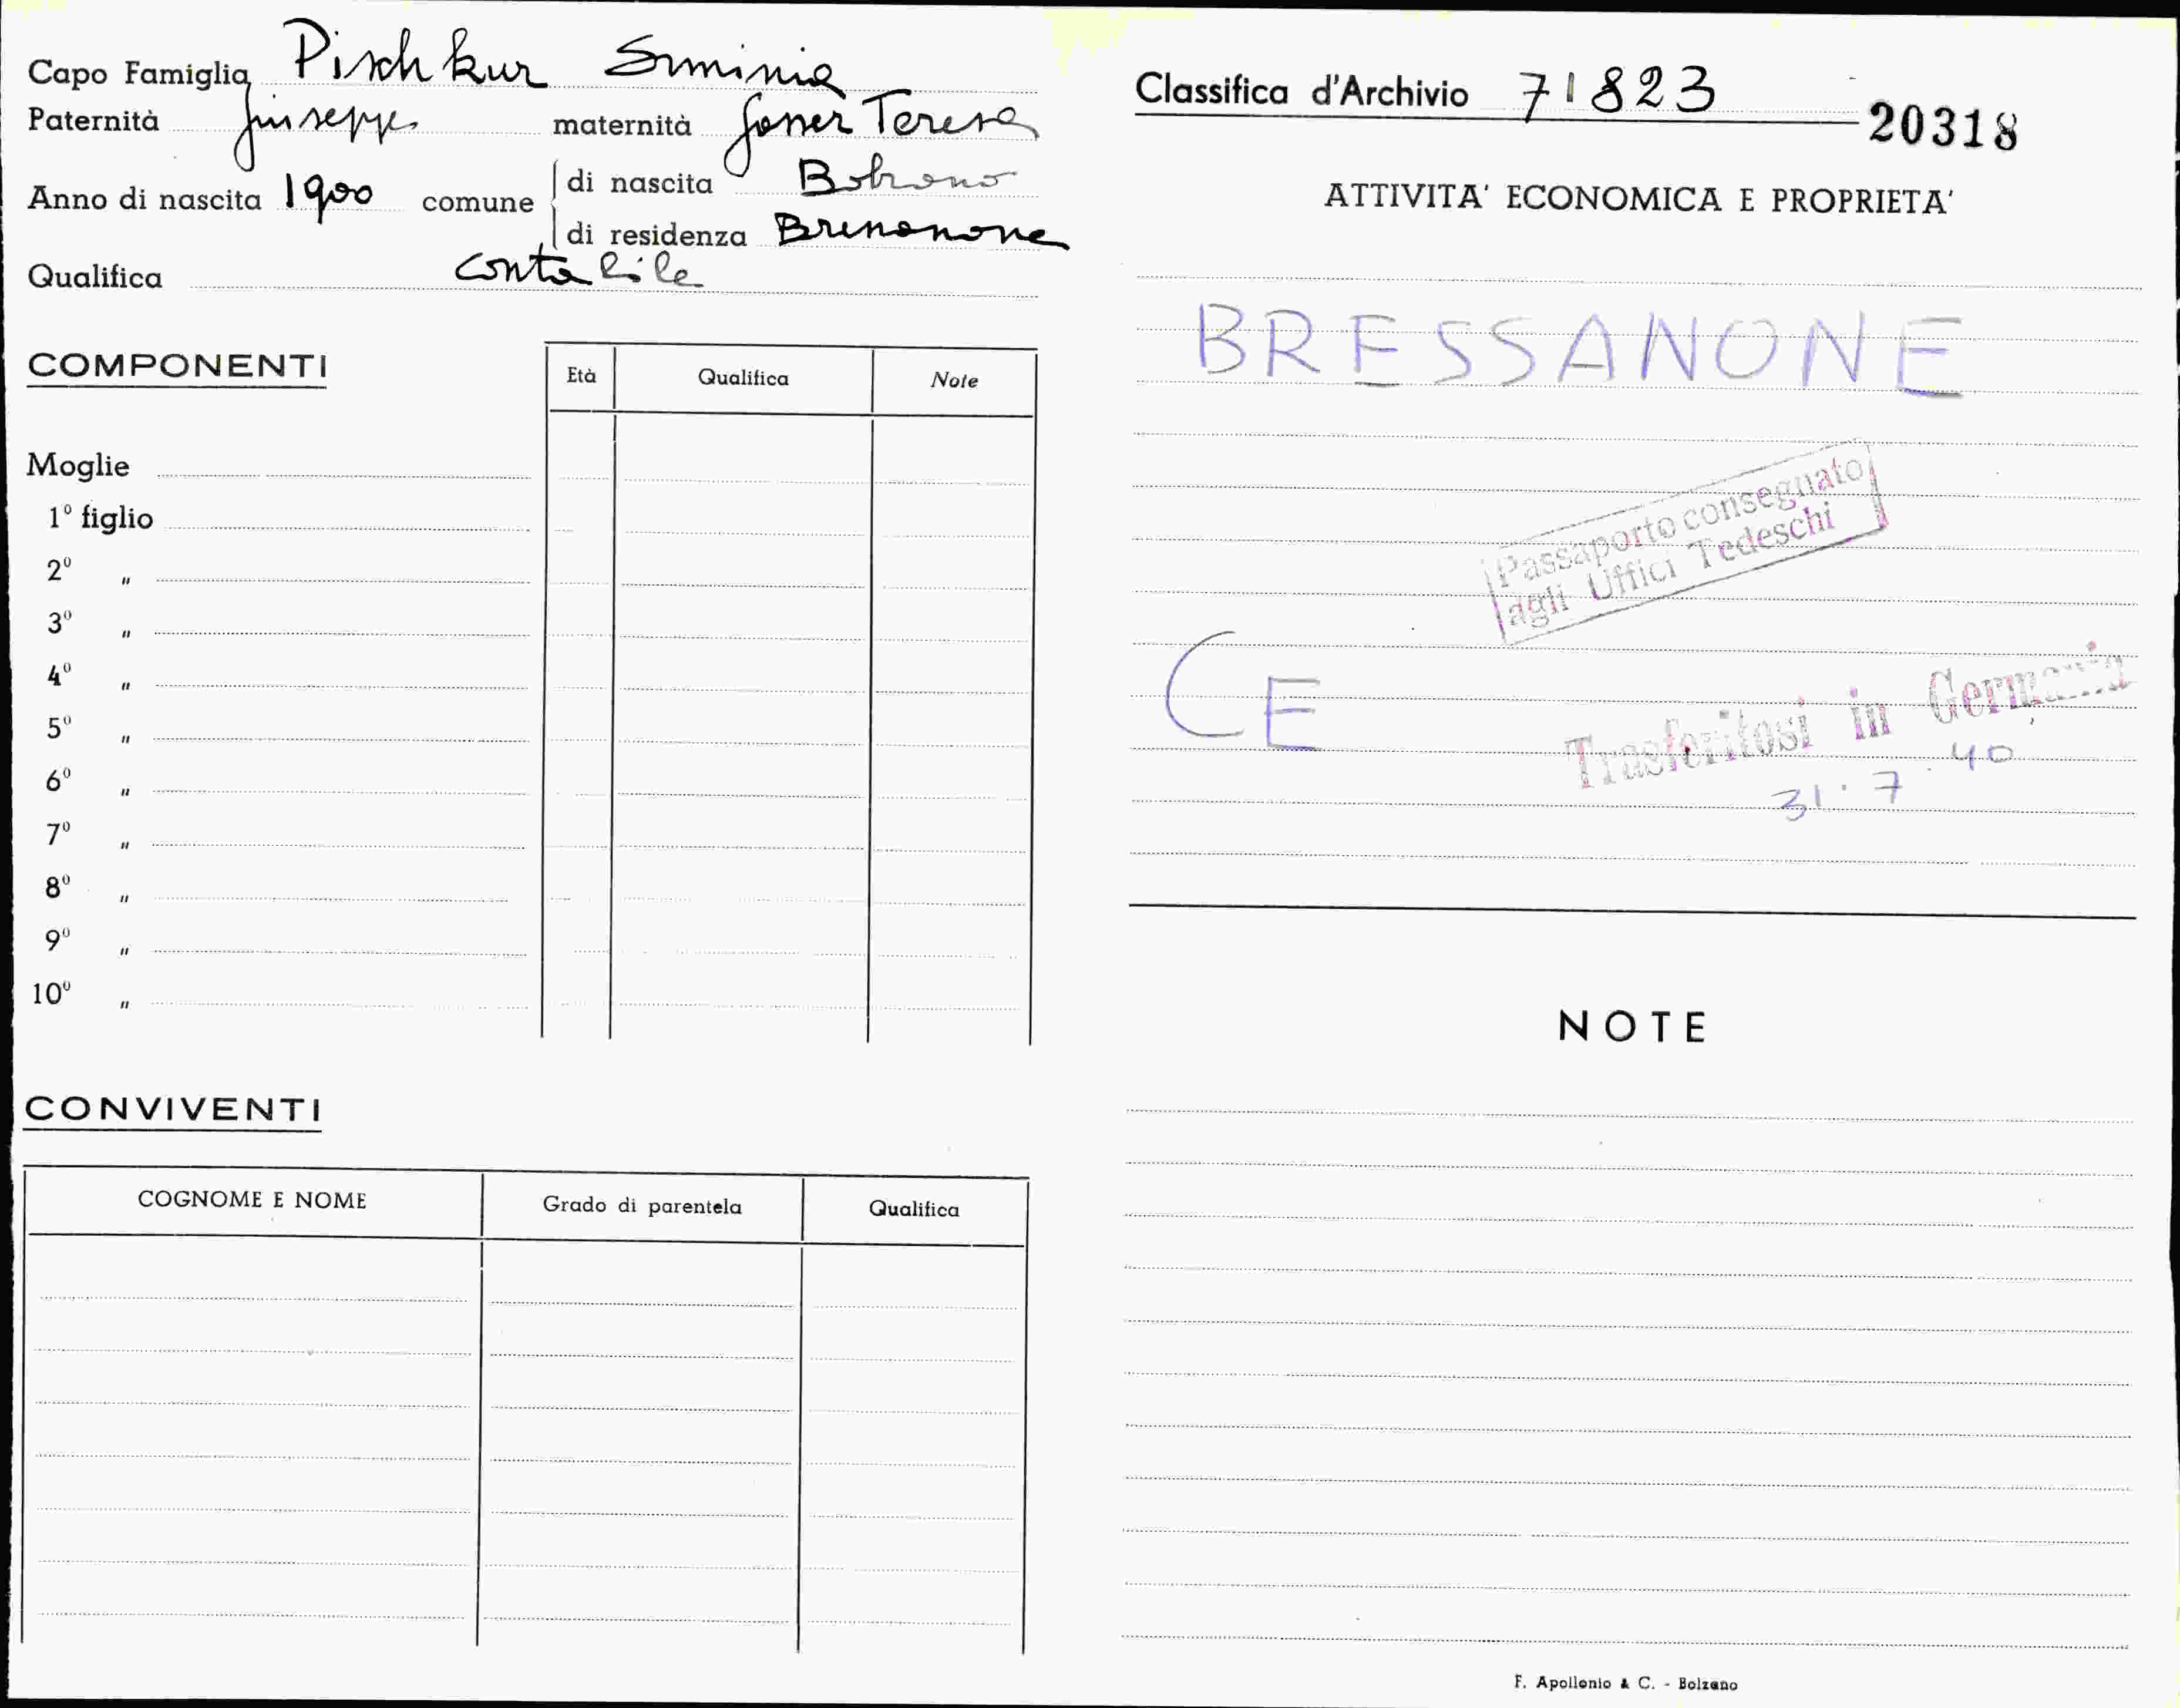 Capo Famiglia Pischkur Erminia
Paternità Giuseppe maternità Teresa
Anno di nascita 1900 comune di nascita Bolzano
di residenza Bressanone
Qualifica contabile
COMPONENTI
Età Qualifica Note
Moglie
1º figlio
2º "
3º "
4º "
5º "
6º "
7º "
8º "
9º "
10º "
CONVIVENTI
COGNOME E NOME Grado di parentela Qualifica
Classifica d'Archivio 71823
20318
ATTIVITA' ECONOMICA E PROPRIETA'
BRESSANONE
Passaporto consegnato
agli Uffici Tedeschi
CE
Trasferitosi in Germania
31.7.40
NOTE
F. Apollonio & C. - Bolzano